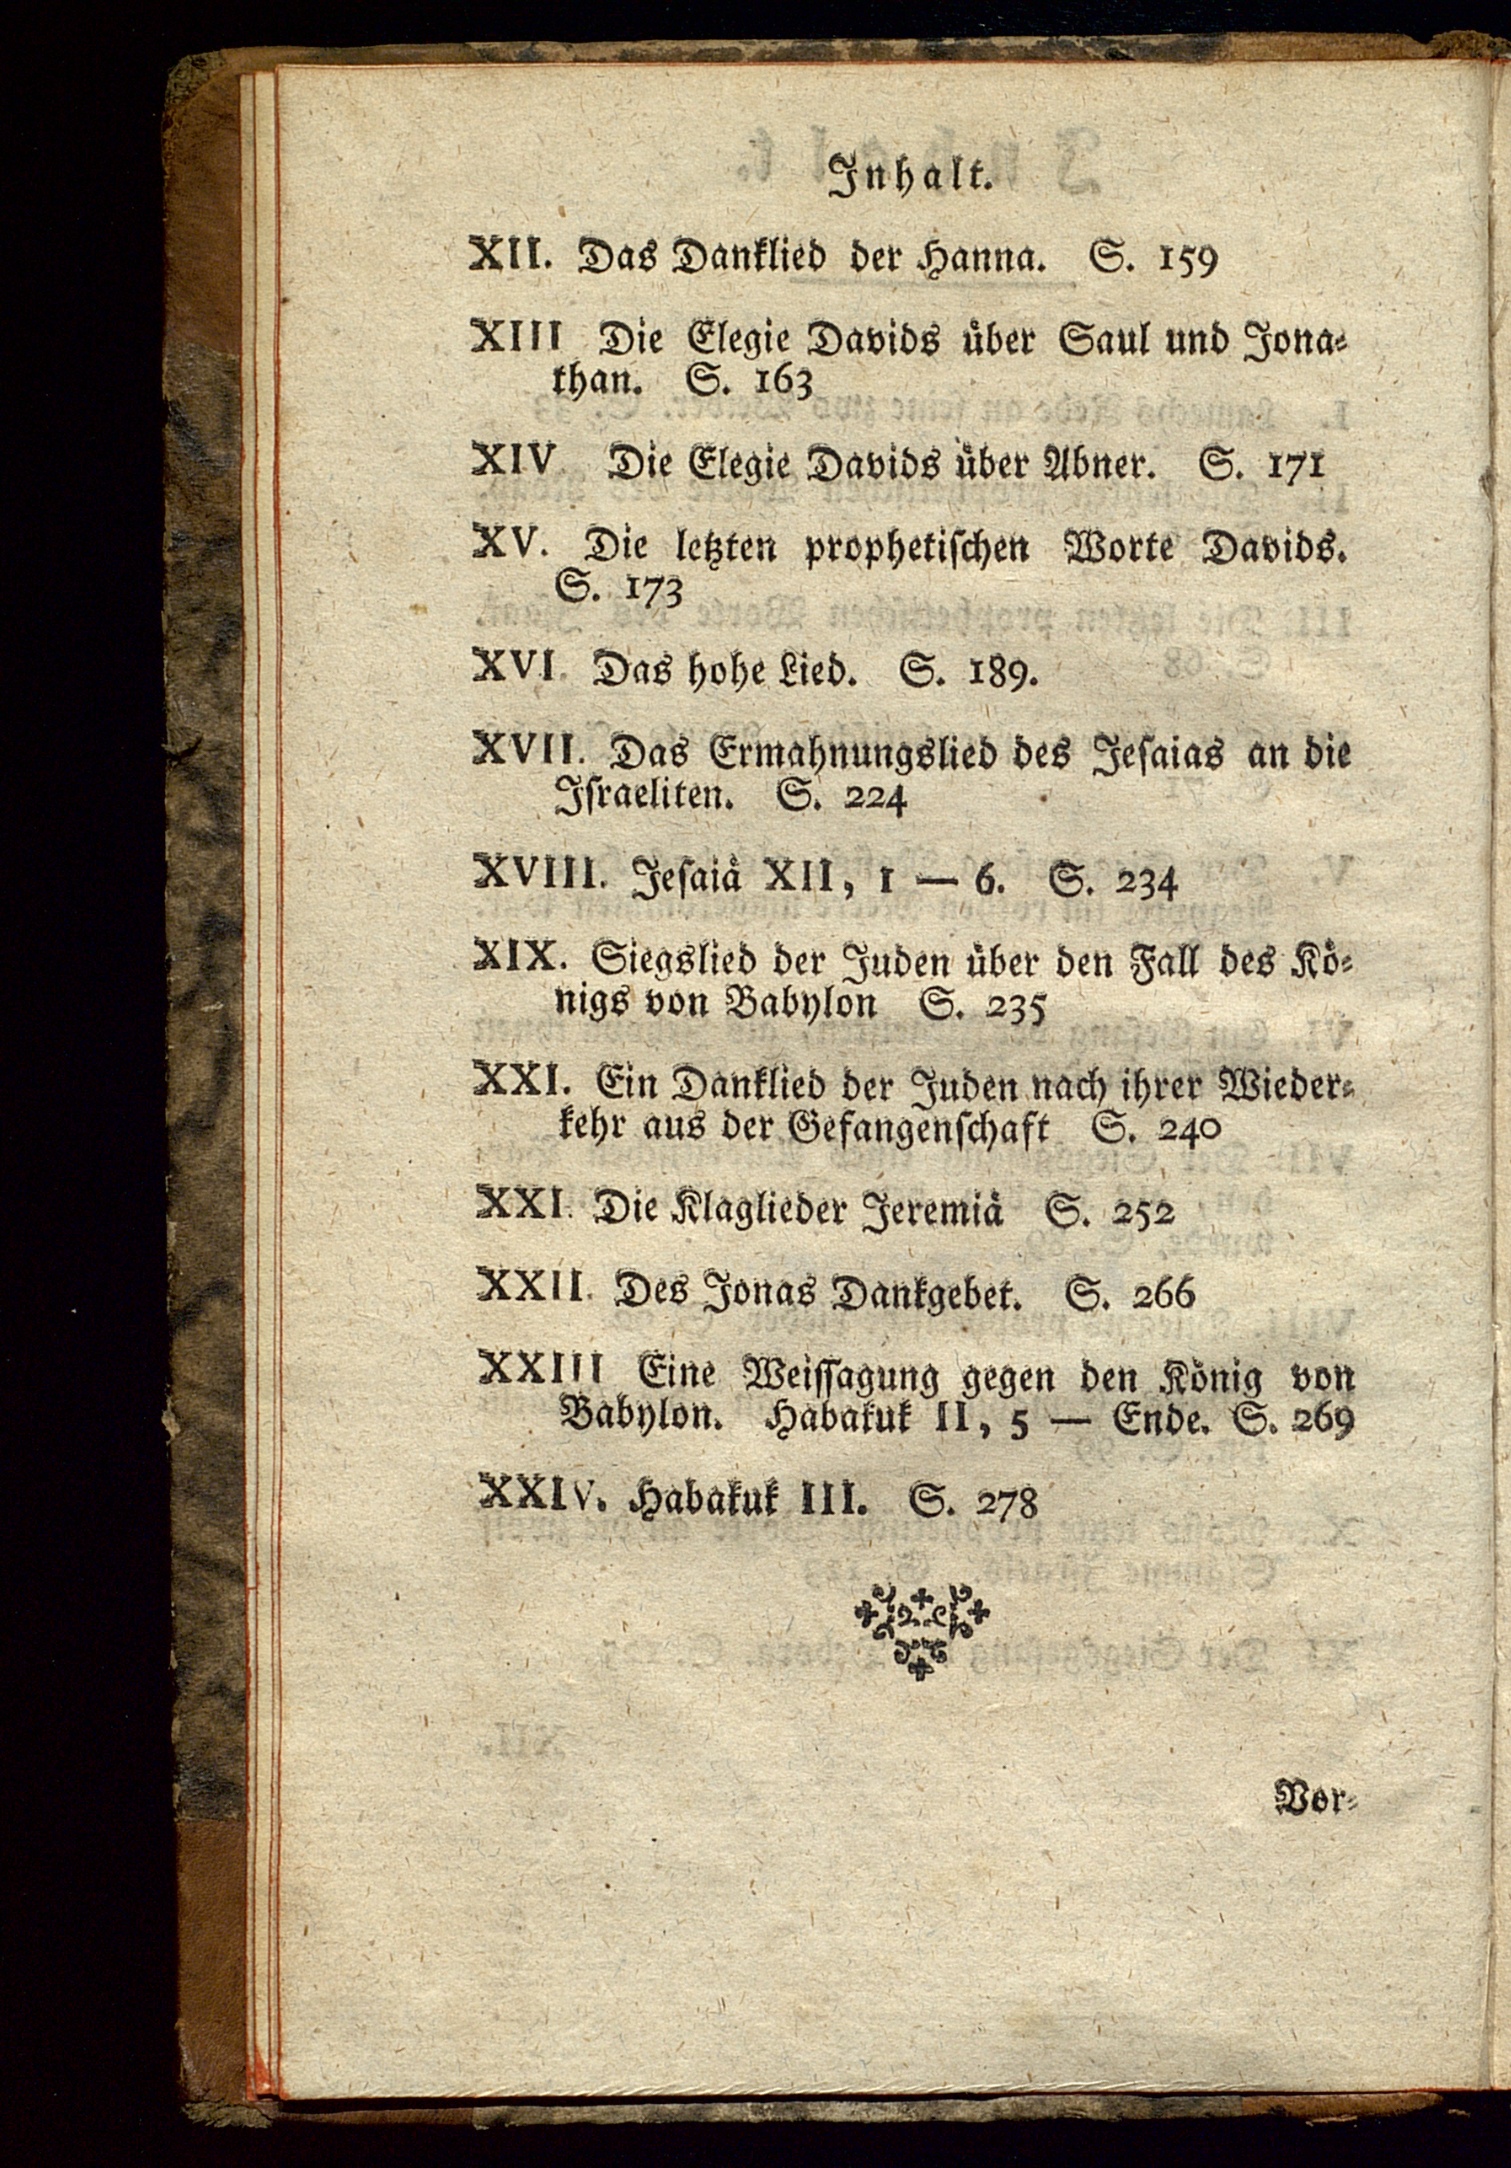 Inhalt.
XII. Das Danklied der Hanna. S. 159
XIII Die Elegie Davids über Saul und Jona⸗
than. S. 163
XIV Die Elegie Davids über Abner. S. 171
XV. Die letzten prophetiſchen Worte Davids.
S. 173
XVI. Das hohe Lied. S. 189.
XVII. Das Ermahnungslied des Jeſaias an die
Iſraeliten. S. 224
XVIII. Jeſaiä XII, 1 — 6. S. 234
XIX. Siegslied der Juden über den Fall des Kö⸗
nigs von Babylon S. 235
XXI. Ein Danklied der Juden nach ihrer Wieder⸗
kehr aus der Gefangenſchaft S. 240
XXI. Die Klaglieder Jeremiä S. 252
XXII. Des Jonas Dankgebet. S. 266
XXIII Eine Weiſſagung gegen den König von
Babylon. Habakuk II, 5 — Ende. S. 269
XXIV. Habakuk III. S. 278
Vor⸗